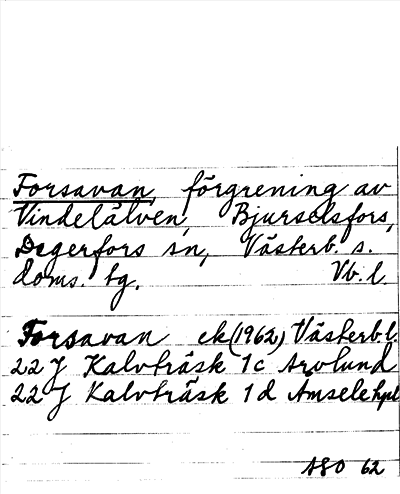 Forsavan, förgrening av
Vindelälven, Bjurselsfors,
Degerfors sn, Västerb. s.
doms. tg. Vb. l.
Forsavan ek (1962) Västerb. l.
22 J Kalvträsk 1c Arvlund
22 J Kalvträsk 1d Amsele hpl
ASO 62